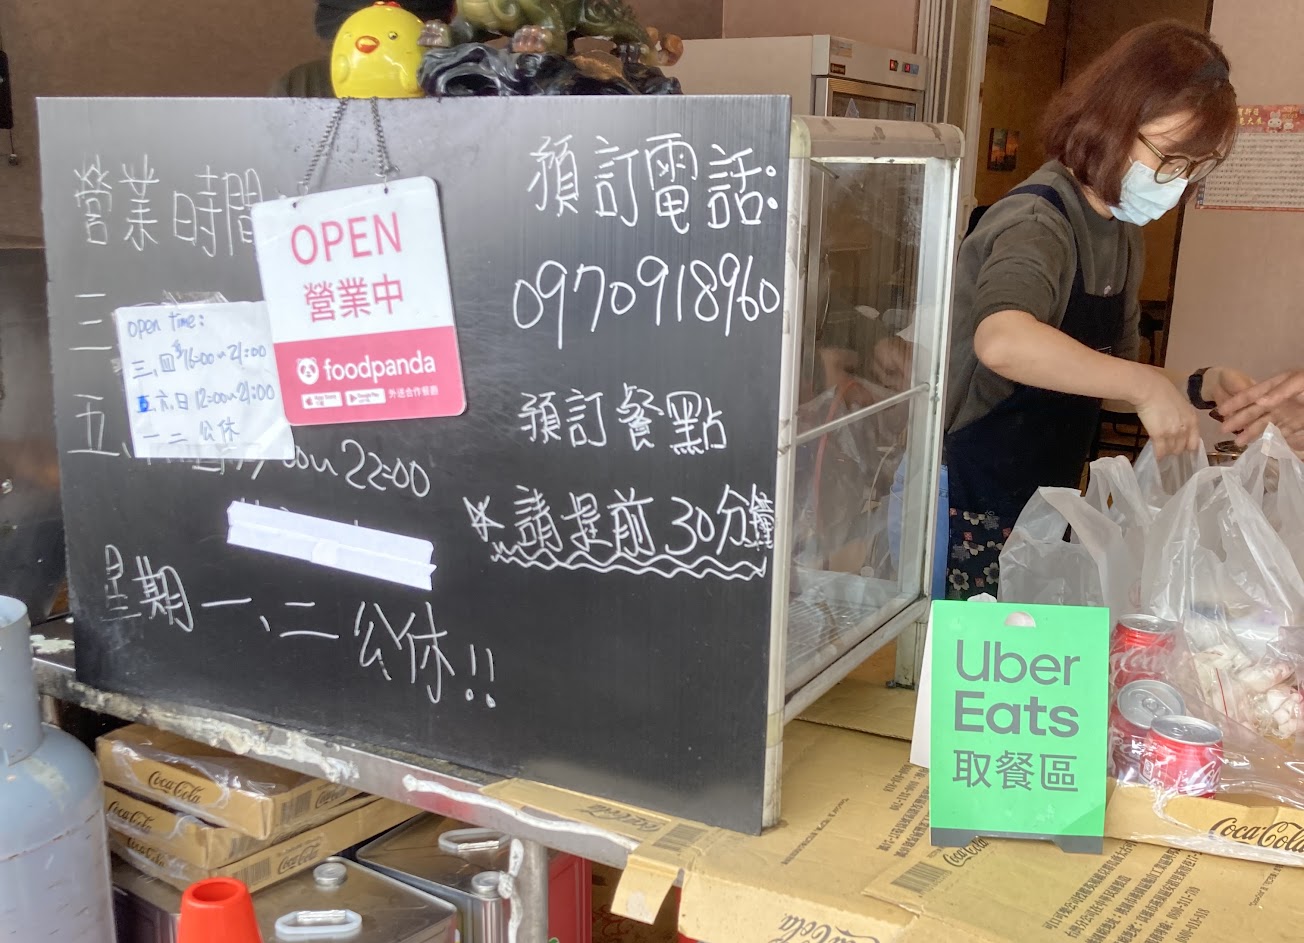 營業時間
三
五、
22:00
星期一、二 公休!!
open time:
三、四 16:00~21:00
五、六、日 12:00~21:00
一 二 公休
OPEN
營業中
foodpanda
外送合作餐廳
預訂電話:
0970918960
預訂餐點
請提前30分鐘
Uber
Eats
取餐區
Coca-Cola
Coca-Cola
Coca-Cola
Coca-Cola
Coca-Cola
Coca-Cola